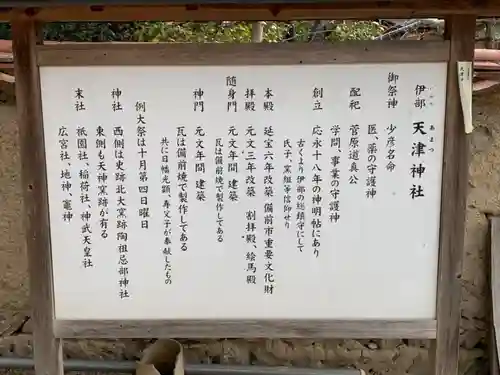 伊部 天津神社
いんべ あまつ
御祭神 少彦名命
医、薬の守護神
配祀 菅原道真公
学問、事業の守護神
創立 応永十八年の神明帖にあり
古くより伊部の総鎮守にして
氏子、窯組等信仰せり
本殿 延宝六年改築 備前市重要文化財
拝殿 元文三年改築 割拝殿、絵馬殿
随身門 元文年間 建築
瓦は備前焼で製作してある
神門 元文年間 建築
瓦は備前焼で製作してある
共に日幡光顕、寿父子が奉献したもの
例大祭は十月第四日曜日
神社 西側は史跡北大窯跡陶祖忌部神社
東側も天神窯跡が有る
末社 祇園社、稲荷社、神武天皇社
広宮社、地神、竈神